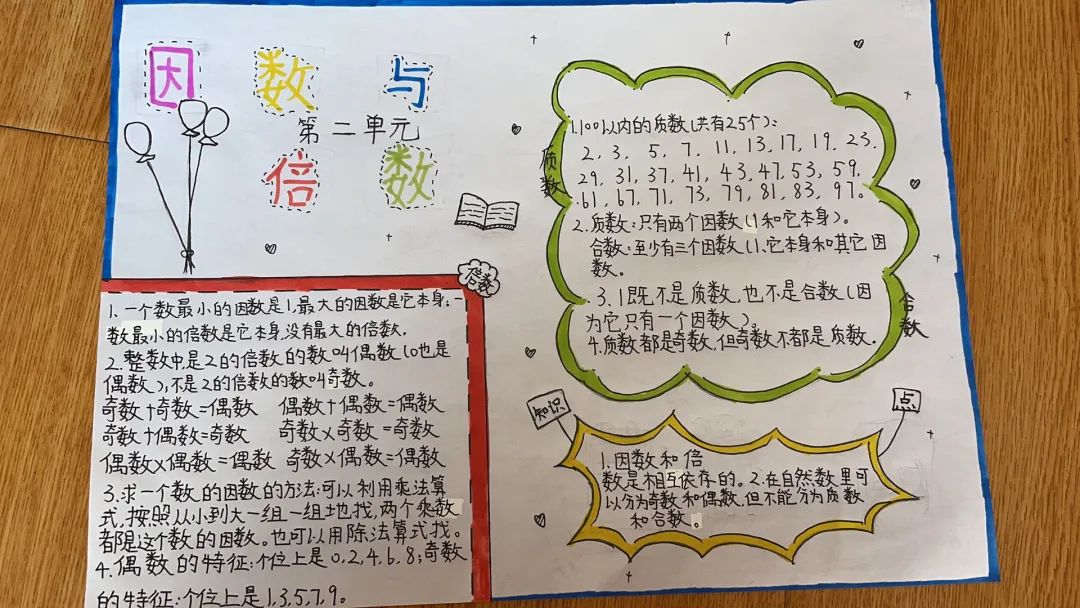 因数与
第二单元
倍数
倍数
1.一个数最小的因数是1,最大的因数是它本身.一
数最小的倍数是它本身,没有最大的倍数.
2.整数中,是2的倍数的数叫偶数(0也是
偶数),不是2的倍数的数叫奇数。
奇数+奇数=偶数 偶数+偶数=偶数
奇数+偶数=奇数 奇数×奇数=奇数
偶数×偶数=偶数 奇数×偶数=偶数
3.求一个数的因数的方法:可以利用乘法算
式,按照从小到大一组一组地找,两个乘数
都是这个数的因数。也可以用除法算式找。
4.偶数的特征:个位上是0,2,4,6,8;奇数
的特征:个位上是1,3,5,7,9。
质数
1.100以内的质数(共有25个):
2, 3, 5, 7, 11, 13, 17, 19, 23.
29, 31, 37, 41, 43, 47, 53, 59.
61, 67, 71, 73, 79, 81, 83, 97。
2.质数:只有两个因数(1和它本身)。
合数:至少有三个因数(1、它本身和其它因
数。
3.1既不是质数,也不是合数(因
为它只有一个因数)。
4.质数都是奇数,但奇数不都是质数。
合数
知识
点
1.因数和倍
数是相互依存的。2.在自然数里可
以分为奇数和偶数,但不能分为质数
和合数。